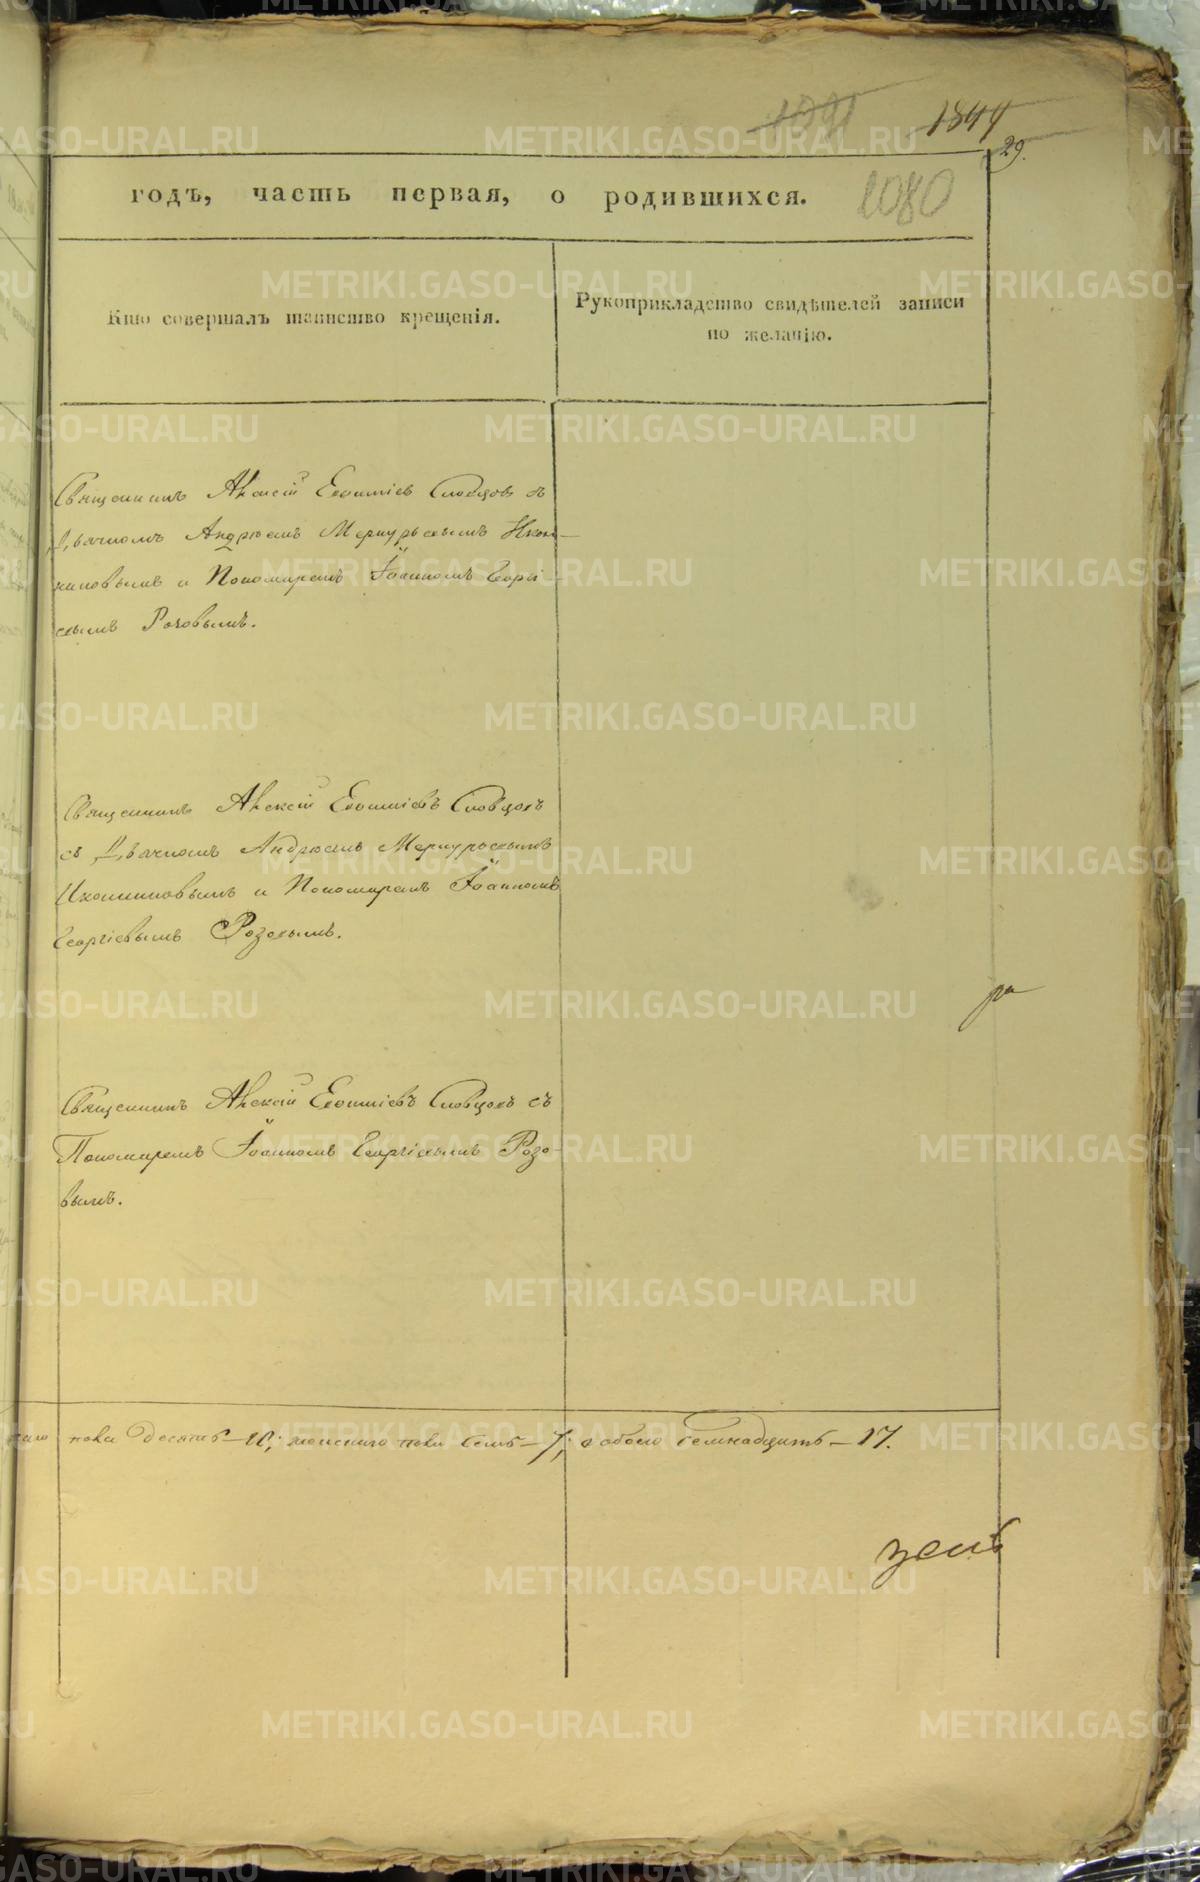 1844
29.
1080
годъ, часть первая, о родившихся.
Кто совершалъ таинство крещенія.
Рукоприкладство свидѣтелей записи
по желанію.
Священникъ Алексій Евѳиміевъ Словцовъ съ
Дьячкомъ Андреемъ Меркурьевымъ Икон-
никовымъ и Пономаремъ Іоанномъ Георгі-
евымъ Розовымъ.
Священникъ Алексій Евѳиміевъ Словцовъ
съ Дьячкомъ Андреемъ Меркурьевымъ
Иконниковымъ и Пономаремъ Іоанномъ
Георгіевымъ Розовымъ.
Священникъ Алексій Евѳиміевъ Словцовъ съ
Пономаремъ Іоанномъ Георгіевымъ Розо-
вымъ.
пола десять – 10; женскаго пола семь – 7; обоего семнадцать – 17.
METRIKI.GASO-URAL.RU